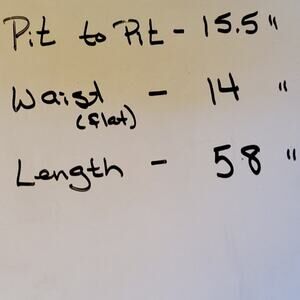 Pit to Pit - 15.5"
Waist - 14"
(flat)
Length - 58"